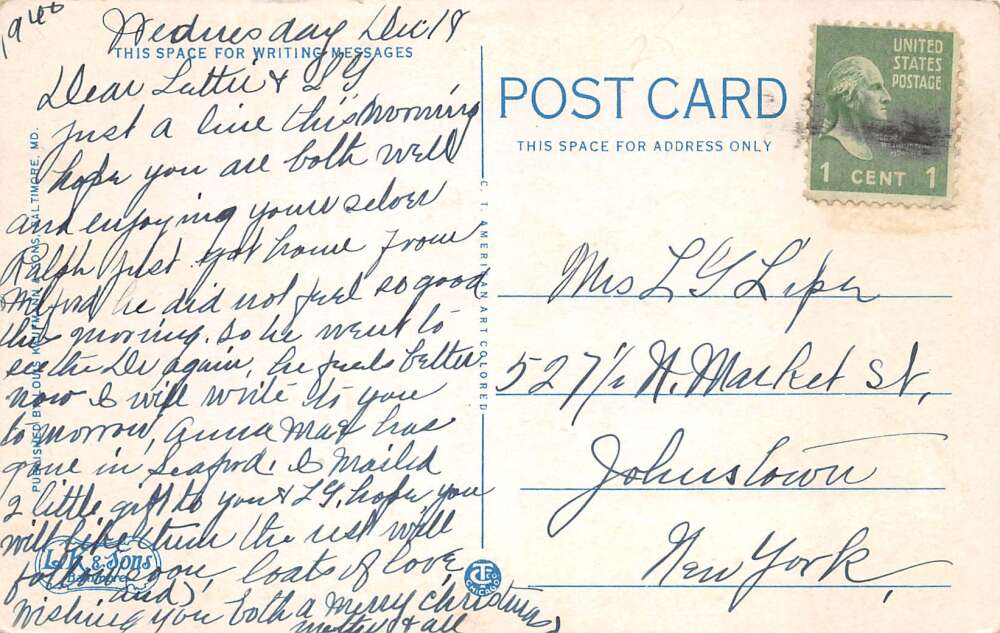 1940
Wednesday Dec 18
THIS SPACE FOR WRITING MESSAGES
Dear Lettie & LG
just a line this morning
hope you are both well
and enjoying your selves
Ralph just got home from
Milford he did not feel so good
this morning. so he went to
see the Dr again, he feels better
now I will write to you
tomorrow, Anna Mae has
gone in Seaford. I mailed
2 little gift to you & LG, hope you
will like them the rest will
follow soon, loats of love,
and
Wishing you both a Merry Christmas
mother & all
PUBLISHED BY LOUIS KAUFMANN & SONS, BALTIMORE, MD.
L.K. & Sons
Baltimore
C. T. AMERICAN ART COLORED
CHICAGO
POST CARD
THIS SPACE FOR ADDRESS ONLY
UNITED
STATES
POSTAGE
1 CENT 1
Mrs L G Liper
527 1/2 N. Market St,
Johnstown
New York,